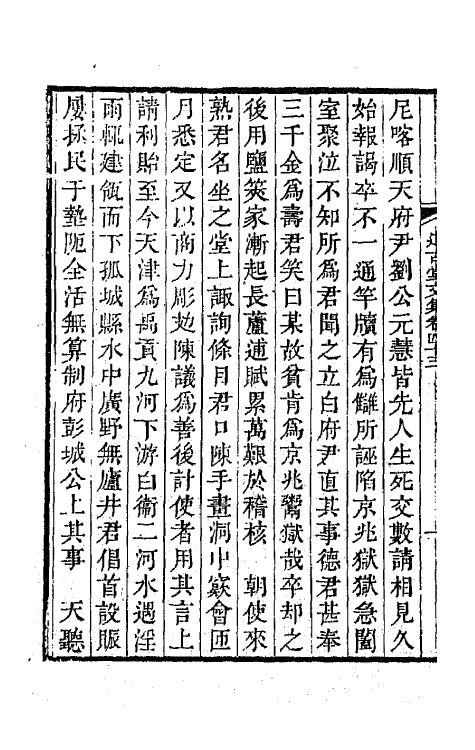 尼喀順天府尹劉公元慧皆先人生死交數請相見久
始報謁卒不一通竿牘有為讎所誣陷京兆獄獄急闔
室聚泣不知所為君聞之立白府尹直其事德君甚奉
三千金為壽君笑曰某故貧肯為京兆鬻獄哉卒却之
後用鹽筴家漸起長蘆逋賦累萬艱於稽核　朝使來
熟君名坐之堂上諏詢條目君口陳手畫洞中窽會匝
月悉定又以商力彫攰陳議為善後計使者用其言上
請利貽至今天津為禹貢九河下游白衞二河水遇淫
雨輒建瓴而下孤城縣水中廣野無廬井君倡首設賑
屢拯民于墊阨全活無算制府彭城公上其事　天聽
道古堂文集卷四十三